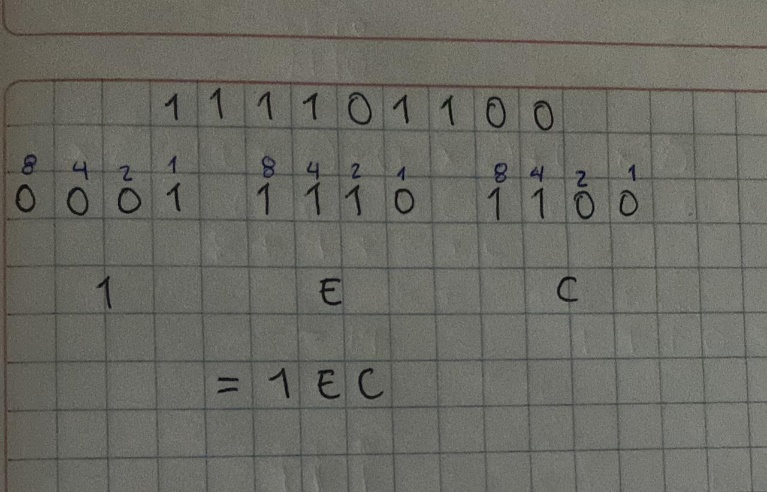 1 1 1 1 0 1 1 0 0
8 4 2 1 8 4 2 1 8 4 2 1
0 0 0 1 1 1 1 0 1 1 0 0
1 E C
= 1 E C